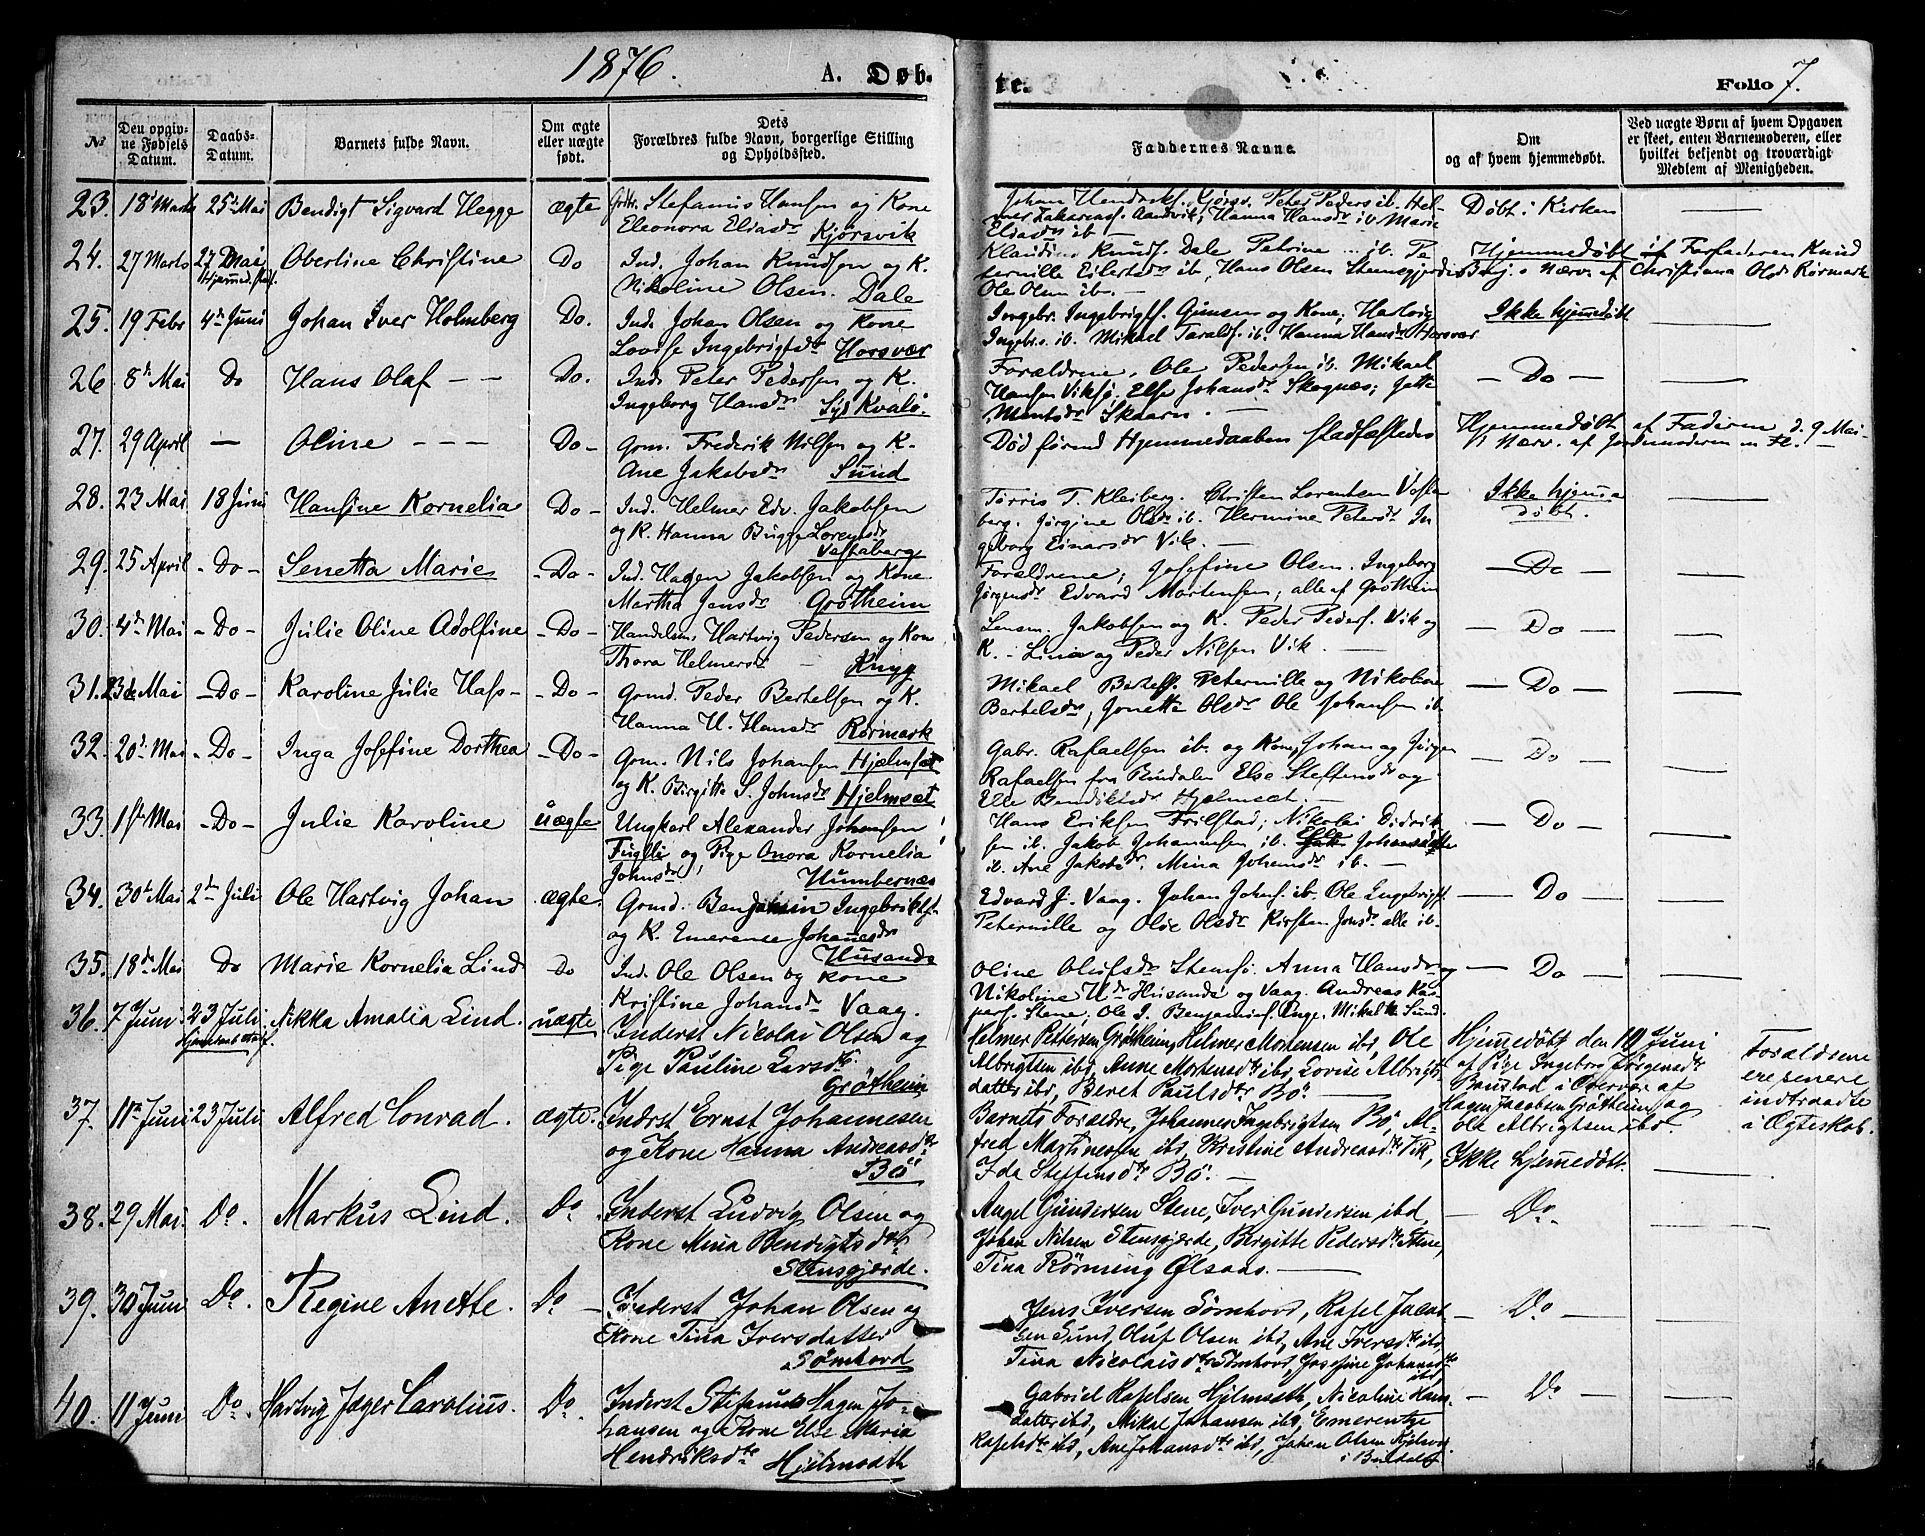 1876.
A. Døb-
te.
Folio 7.
№
Den opgiv-
ne Fødsels
Datum.
Daabs-
Datum.
Barnets fulde Navn.
Om ægte
eller uægte
født.
Dets
Forældres fulde Navn, borgerlige Stilling
og Opholdssted.
Faddernes Navne.
Om
og af hvem hjemmedøbt.
Ved uægte Børn af hvem Opgaven
er skeet, enten Barnemoderen, eller
hvilket bekjendt og troværdigt
Medlem af Menigheden.
23. 18 Marts 25 Mai Bendigt Sigvard Hegge ægte Stefanus Hansen og Kone
Eleonora Eliasdr Kjørsvik
Johan Hendriks. Kjørsv. Peter Peders ib. Hel-
mer Zakarias. Aandvik, Hanna Hansdr ib. Marie
Eliasdr ib - Døbt i Kirken
24. 27 Marts 27 Mai Obertine Christine Do Ind. Johan Knudsen og K.
Hjemmed. stadf.
Nikoline Olsen. Dale
Klaudine Knuds. Dale Petrine ib. Pe-
ternille Eilertsdr ib, Hans Olsen Stensgjerde
Ole Olsen ib -
Hjemmedøbt af Farfaderen Knud
i Nærv. af Christiana Olsdr Rörmark
25. 19 Febr 4de Juni Johan Iver Holmberg Do. Ind. Johan Olsen og Kone
Lovise Ingebrigtsdr Horsvær
Ingebr. Ingebrigts. og Kone, Hartvig
Ingebr.s. ib. Mikael Taralds. ib. Hanna Hansdr Horsvær
Ikke hjemmedøbt
26. 8de Mai Do Hans Olaf - - Do. Ind. Peter Pedersen og K.
Ingeborg Hansdr Syd Kvalö.
Forældrene, Ole Pedersen ib. Mikael
Hansen Viksö, Else Johansdr Skognæs; Jette
Montsdr Skaarn. -
- Do -
27. 29 April - Oline - - - Do - Grm. Frederik Nilsen og K.
Ane Jakobsdr Sund
Død förend Hjemmedaaben stadfæstedes
Hjemmedøbt af Faderen d. 9 Mai
i Nærv. af Jordmoderen m. Fl. -
28. 23 Mai 18 Juni Hansine Kornelia Do - Ind. Helmer Edv. Jakobsen
og K. Hanna Bugge Lorentsdr
Vestaberg
Tørris T. Kleiberg. Christen Lorentsen Vesta-
berg. Jørgine Olsdr ib. Hermine Petersdr In-
geborg Einarsdr Vik. -
Ikke hjemme
döbt.
29. 25 April - Do - Senetta Marie - Do - Ind. Hagen Jakobsen og Kone
Martha Jensdr Grøtheim
Forældrene, Josefine Olsen. Ingeborg
Jörgensdr Edvard Mortensen, alle af Grøtheim
- Do -
30. 4de Mai - Do - Julie Oline Adolfine - Do - Handelsm. Hartvig Pedersen og Kone
Thora Helmersdr - Knyp
Lensm. Jakobsen og K. Peder Peders. Vik og
K. - Lina og Peder Nilsen Vik. -
- Do -
31. 23de Mai - Do - Karoline Julie Hass - - Do - Grmd. Peder Bertelsen og K.
Hanna H. Hansdr Rörmark
Mikael Bertels. Peternille og Nikoline
Bertelsdr, Jonette Olsdr Ole Johansen ib
- Do -
32. 20de Mai - Do - Inga Josefine Dorthea - Do - Grm. Nils Johansen Hjelmset
og K. Birgitte S. Johnsdr Hjelmset
Gabr. Rafaelsen ib. og Kone, Johan og Jörgen
Rafaelsen fra Bindalen Else Steffensdr og
Elle Bendiktsdr Hjelmset. -
- Do -
33. 1ste Mai - Do - Julie Karoline uægte Ungkarl Alexander Johansen
Fuglli og Pige Onora Kornelia
Johnsdr Humbernæs
Hans Eriksen Frilstad; Nikolai Didrik-
sen ib. Jakob Johannsen ib. Else Johansdatter
ib. Ane Jakobsdr. Mina Johansdr ib. -
- Do -
34. 30te Mai 2den Juli Ole Hartvig Johan ægte. Grmd. Benjamin Ingebrigts.
og K. Emerense Johannesdr
Husande
Edvard J. Vaag. Johan Johns. ib. Ole Ingebrigts.
Peternille og Oline Olsdr Kirsten Jonsdr alle ib.
- Do -
35. 18de Mai Do Marie Kornelia Lind Do Ind. Ole Olsen og Kone
Kristine Johansdr Vaag.
Oline Olufsdr Stensö. Anna Hansdr og
Nikoline Hdr Husande og Vaag. Andreas Kas-
pers. Stene, Ole I. Benjamins. Mikal Sund.
- Do -
36. 7 Juni 23 Juli Nikka Amalia Lind. uægte Inderst Nicolai Olsen og
Pige Pauline Larsdtr.
Grøtheim
Helmer Pettersen Grøtheim, Helmer Mortensen ibd, Ole
Albrigtsen ibd, Anne Mortensdtr ibd, Lovise Albrigts-
datter ibd, Beret Paulsdtr Bö. -
Hjemmedøbt den 10 Juni
af Pige Ingeborg Jørgensdtr
Baustad i Overvær af
Hagen Jacobsen Grøtheim og
Ole Albrigtsen ibd.
Forældrene
ere senere
indtraadte
i Ægteskab.
37. 11te Juni 23 Juli Alfred Conrad. ægte. Inderst Ernst Johannesen
og Kone Hanna Andreasdtr
Bö
Barnets Forældre, Johannes Ingebrigtsen Bö, Al-
fred Martinesen ibd, Kristine Andreasdtr Vik,
Ida Steffensdtr Bö. -
Ikke hjemmedøbt.
38. 29 Mai. Do. Markus Lind. Do. Inderst Ludvig Olsen og
Kone Mina Bendigtsdtr
Stensgjerde.
Angel Gundersen Stene, Iver Gundersen ibd,
Johan Nilsen Stensgjerde, Bergitte Pedersdtr Stene,
Tina Rörning Ølsaas. -
- Do.
39. 30 Juni Do. Regine Anette. Do - Inderst Johan Olsen og
Kone Tina Iversdatter
Sömhovd
Jens Iversen Sömhovd, Rafel Jacob-
sen Sund, Oluf Olsen ibd, Ane Iversdtr ibd,
Tina Nicolaisdtr Sömhovd, Josefine Johansdtr
ibd
- Do -
40. 11 Juni Do. Hartvig Jæger Carolius. Do. Inderst Stefanus Hagen Jo-
hansen og Kone Else Maria
Hendriksdtr Hjelmseth
Gabriel Rafelsen Hjelmseth, Nicoline Hans-
datter ibd, Mikal Johansen ibd, Emerentze
Rafelsdtr ibd, Ane Johansdtr ibd, Johan Olsen
i Bindalen
- Do -